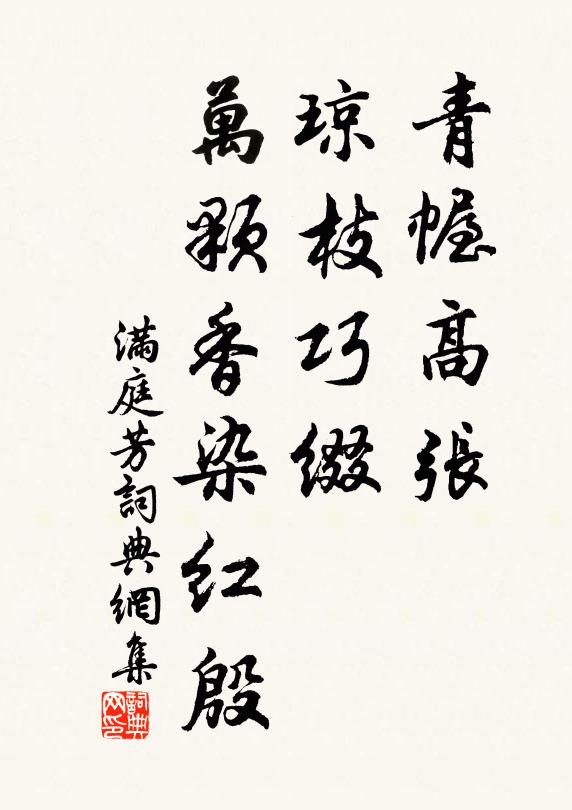 青幄高張
瓊枝巧綴
萬顆香染紅殷
滿庭芳詞典網集
詞典網印